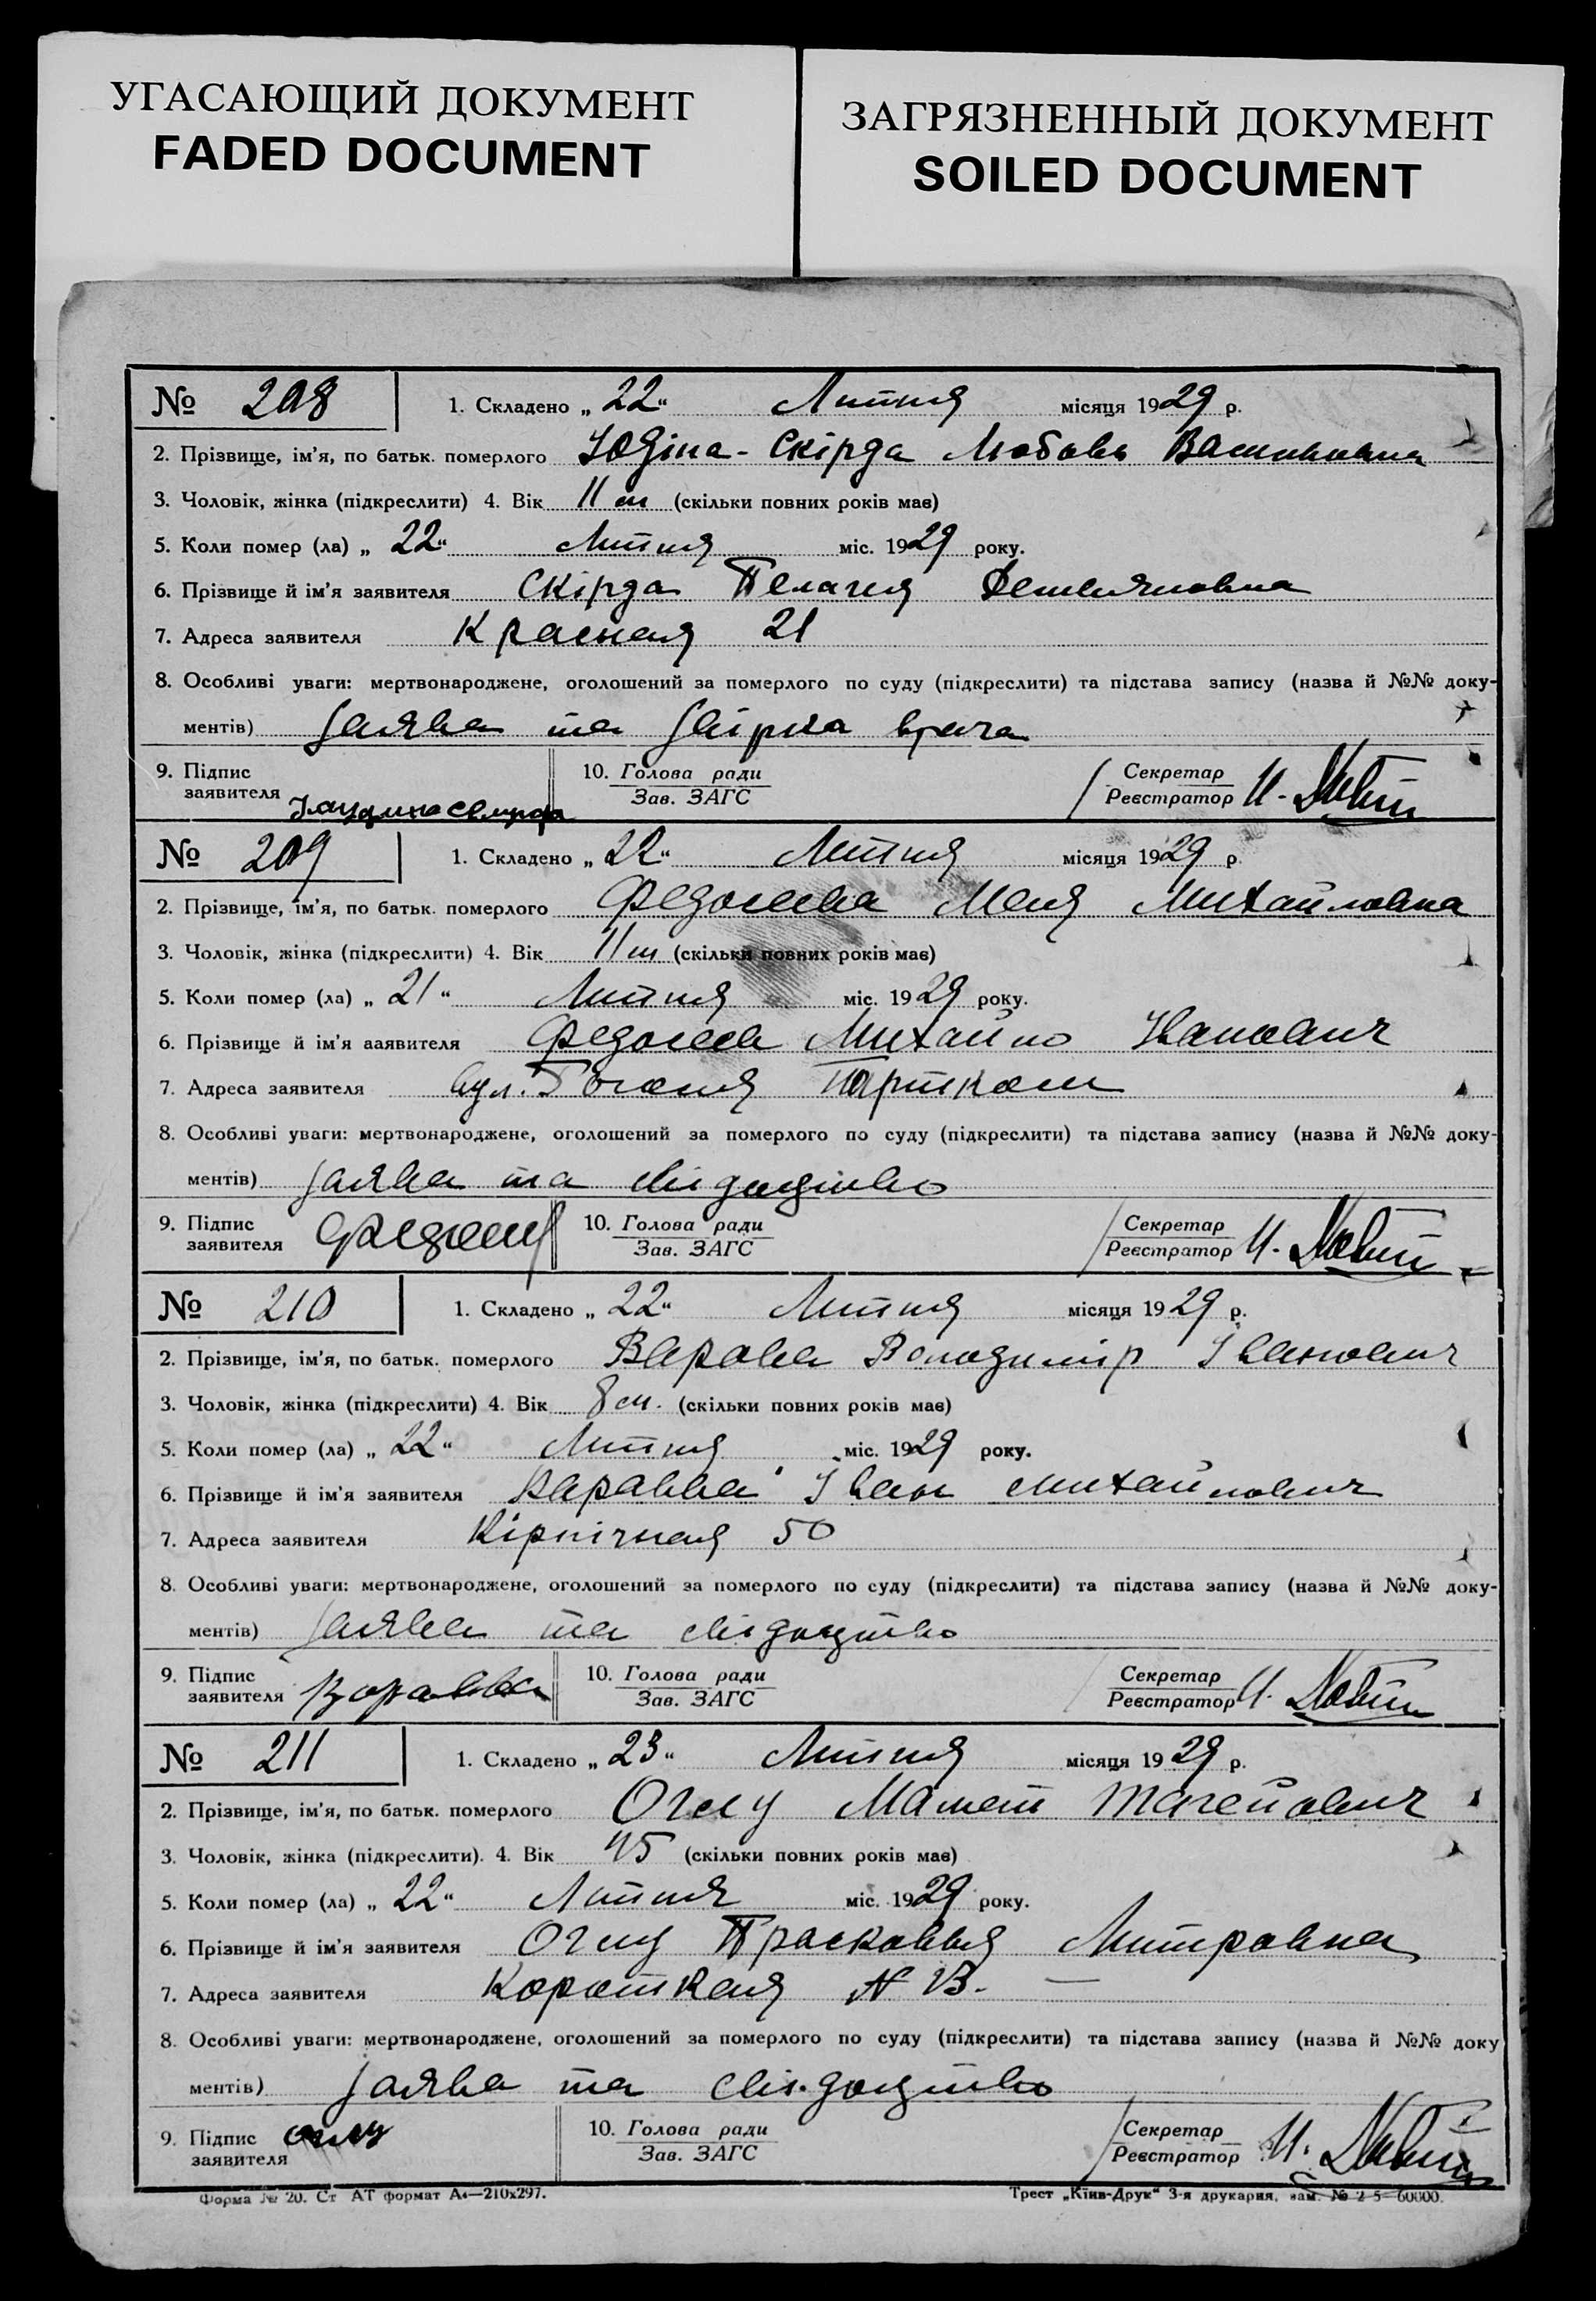 УГАСАЮЩИЙ ДОКУМЕНТ
FADED DOCUMENT
ЗАГРЯЗНЕННЫЙ ДОКУМЕНТ
SOILED DOCUMENT
№ 208 1. Складено „ 22 “ Липня місяця 1929 р.
2. Прізвище, ім’я, по батьк. померлого Юдіна - Скірда Любовь Васильовна
3. Чоловік, жінка (підкреслити) 4. Вік 11 м (скільки повних років має)
5. Коли помер (ла) „ 22 “ Липня міс. 1929 року.
6. Прізвище й ім’я заявителя Скірда Пелагея Демьяновна
7. Адреса заявителя Красная 21
8. Особливі уваги: мертвонароджене, оголошений за померлого по суду (підкреслити) та підстава запису (назва й №№ доку-
ментів) Заява та врача
9. Підпис
заявителя
10. Голова ради
Зав. ЗАГС
Секретар
Реєстратор
№ 209 1. Складено „ 22 “ Липня місяця 1929 р.
2. Прізвище, ім’я, по батьк. померлого Федосеева Михайловна
3. Чоловік, жінка (підкреслити) 4. Вік 11 м (скільки повних років має)
5. Коли помер (ла) „ 21 “ Липня міс. 1929 року.
6. Прізвище й ім’я ааявителя Федосеев Михайло Іванович
7. Адреса заявителя вул. Гоголя Партком
8. Особливі уваги: мертвонароджене, оголошений за померлого по суду (підкреслити) та підстава запису (назва й №№ доку-
ментів) Заява та свідоцтво
9. Підпис
заявителя
10. Голова ради
Зав. ЗАГС
Секретар
Реєстратор
№ 210 1. Складено „ 22 “ Липня місяця 1929 р.
2. Прізвище, ім’я, по батьк. померлого Варава Володимір Іванович
3. Чоловік, жінка (підкреслити) 4. Вік 8 м. (скільки повних років має)
5. Коли помер (ла) „ 22 “ Липня міс. 1929 року.
6. Прізвище й ім’я заявителя Варавва Іван Михайлович
7. Адреса заявителя Кірпічная 50
8. Особливі уваги: мертвонароджене, оголошений за померлого по суду (підкреслити) та підстава запису (назва й №№ доку-
ментів) Заява та свідоцтво
9. Підпис
заявителя Варавва
10. Голова ради
Зав. ЗАГС
Секретар
Реєстратор
№ 211 1. Складено „ 23 “ Липня місяця 1929 р.
2. Прізвище, ім’я, по батьк. померлого Оглу Мамет
3. Чоловік, жінка (підкреслити). 4. Вік 45 (скільки повних років має)
5. Коли помер (ла) „ 22 “ Липня міс. 1929 року.
6. Прізвище й ім’я заявителя Оглу Прасковья Митровна
7. Адреса заявителя Короткая
8. Особливі уваги: мертвонароджене, оголошений за померлого по суду (підкреслити) та підстава запису (назва й №№ доку
ментів) Заява та свідоцтво
9. Підпис Оглу
заявителя
10. Голова ради
Зав. ЗАГС
Секретар
Реєстратор
Форма № 20. Ст АТ формат А4—210х297.
Трест „Київ-Друк“ 3-я друкарня, зам. № 2 5 60000.